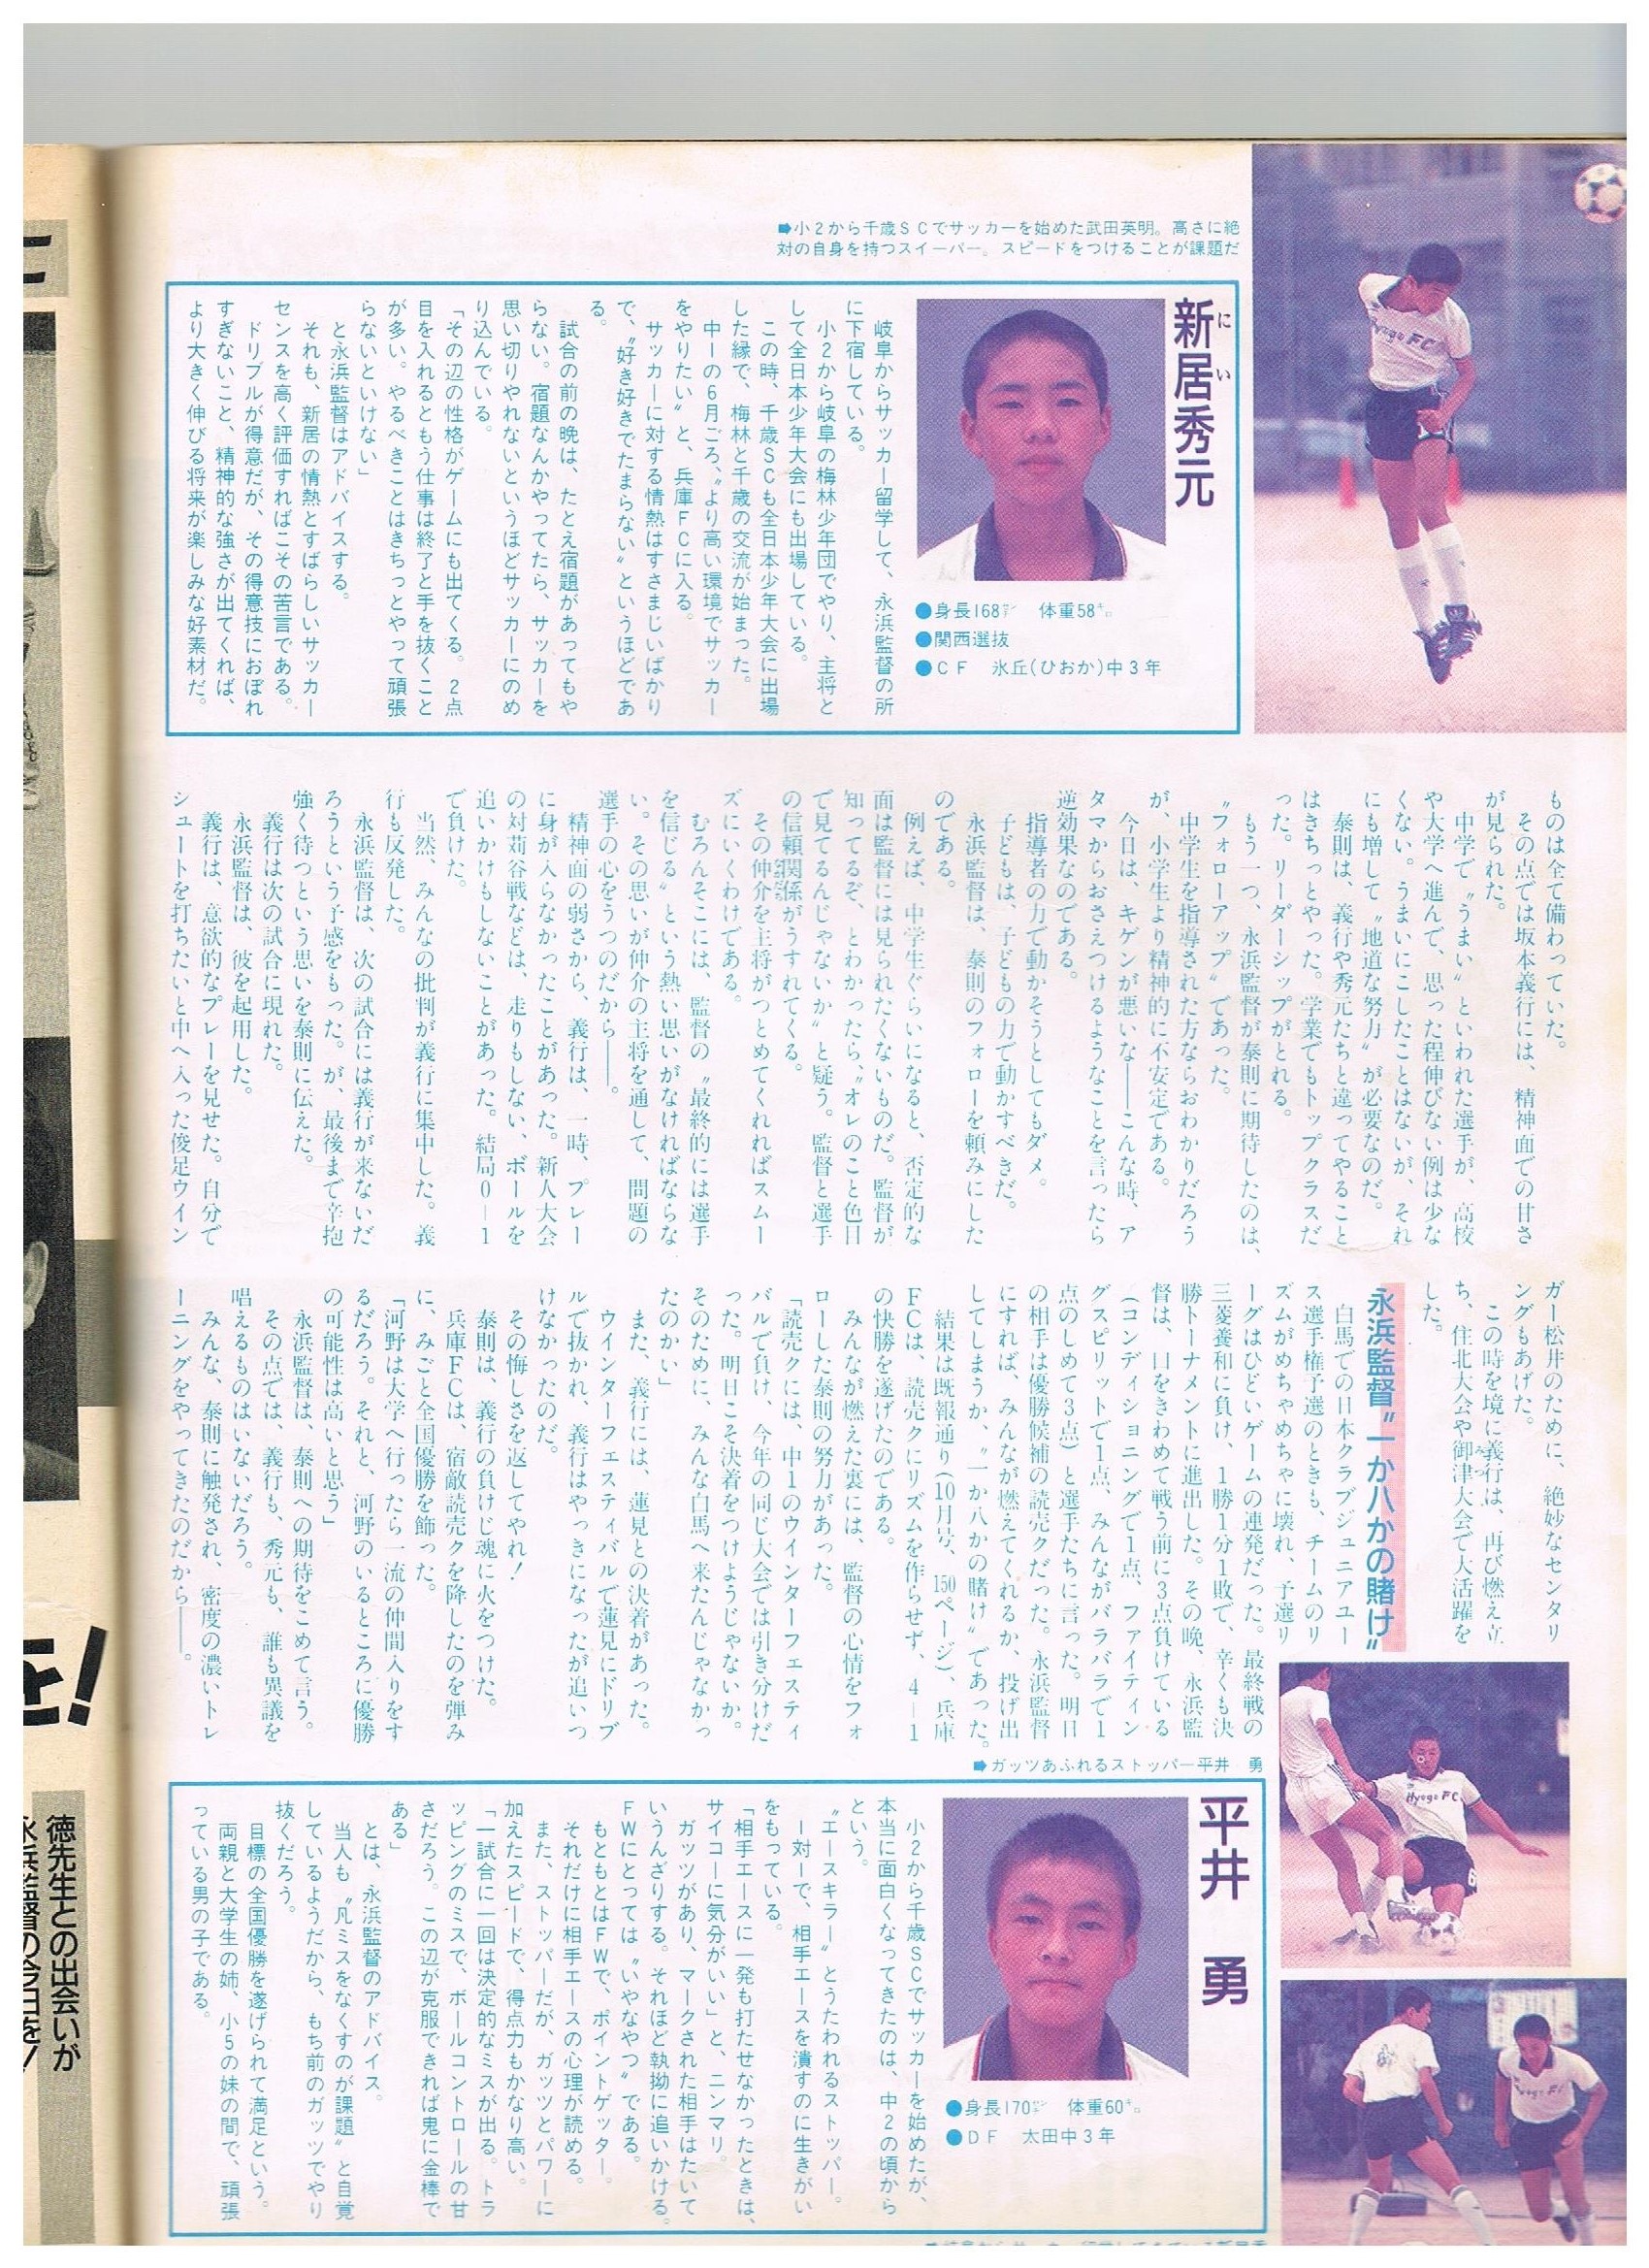 ➡小2から千歳ＳＣでサッカーを始めた武田英明。高さに絶
対の自身を持つスイーパー。スピードをつけることが課題だ
新居秀元
にい
●身長168㌢　体重58㌔
●関西選抜
●ＣＦ　氷丘(ひおか)中3年
岐阜からサッカー留学して、永浜監督の所
に下宿している。
小2から岐阜の梅林少年団でやり、主将と
して全日本少年大会にも出場している。
この時、千歳SCも全日本少年大会に出場
した縁で、梅林と千歳の交流が始まった。
中一の6月ごろ、〝より高い環境でサッカー
をやりたい〟と、兵庫FCに入る。
サッカーに対する情熱はすさまじいばかり
で、〝好き好きでたまらない〟というほどであ
る。
試合の前の晩は、たとえ宿題があってもや
らない。宿題なんかやってたら、サッカーを
思い切りやれないというほどサッカーにのめ
り込んでいる。
「その辺の性格がゲームにも出てくる。2点
目を入れるともう仕事は終了と手を抜くこと
が多い。やるべきことはきちっとやって頑張
らないといけない」
と永浜監督はアドバイスする。
それも、新居の情熱とすばらしいサッカー
センスを高く評価すればこその苦言である。
ドリブルが得意だが、その得意技におぼれ
すぎないこと、精神的な強さが出てくれば、
より大きく伸びる将来が楽しみな好素材だ。
ものは全て備わっていた。
その点では坂本義行には、精神面での甘さ
が見られた。
中学で〝うまい〟といわれた選手が、高校
や大学へ進んで、思った程伸びない例は少な
くない。うまいにこしたことはないが、それ
にも増して〝地道な努力〟が必要なのだ。
泰則は、義行や秀元たちと違ってやること
はきちっとやった。学業でもトップクラスだ
った。リーダーシップがとれる。
もう一つ、永浜監督が泰則に期待したのは、
〝フォローアップ〟であった。
中学生を指導された方ならおわかりだろう
が、小学生より精神的に不安定である。
今日は、キゲンが悪いな――こんな時、ア
タマからおさえつけるようなことを言ったら
逆効果なのである。
指導者の力で動かそうとしてもダメ。
子どもは、子どもの力で動かすべきだ。
永浜監督は、泰則のフォローを頼みにした
のである。
例えば、中学生ぐらいになると、否定的な
面は監督には見られたくないものだ。監督が
知ってるぞ、とわかったら、〝オレのこと色目
で見てるんじゃないか〟と疑う。監督と選手
の信頼関係がうすれてくる。
その仲介を主将がつとめてくれればスムー
ズにいくわけである。
むろんそこには、監督の〝最終的には選手
を信じる〟という熱い思いがなければならな
い。その思いが仲介の主将を通して、問題の
選手の心をうつのだから――。
精神面の弱さから、義行は、一時、プレー
に身が入らなかったことがあった。新人大会
の対苅谷戦などは、走りもしない、ボールを
追いかけもしないことがあった。結局0－1
で負けた。
当然、みんなの批判が義行に集中した。義
行も反発した。
永浜監督は、次の試合には義行が来ないだ
ろうという予感をもった。が、最後まで辛抱
強く待つという思いを泰則に伝えた。
義行は次の試合に現れた。
永浜監督は、彼を起用した。
義行は、意欲的なプレーを見せた。自分で
シュートを打ちたいと中へ入った俊足ウイン
ガー松井のために、絶妙なセンタリ
ングもあげた。
この時を境に義行は、再び燃え立
ち、住北大会や御津大会で大活躍を
した。
永浜監督〝一か八かの賭け〟
白馬での日本クラブジュニアユー
ス選手権予選のときも、チームのリ
ズムがめちゃめちゃに壊れ、予選リ
ーグはひどいゲームの連発だった。最終戦の
三菱養和に負け、1勝1分1敗で、辛くも決
勝トーナメントに進出した。その晩、永浜監
督は、口をきわめて戦う前に3点負けている
（コンディショニングで1点、ファイティン
グスピリットで1点、みんながバラバラで1
点のしめて3点）と選手たちに言った。明日
の相手は優勝候補の読売クだった。永浜監督
にすれば、みんなが燃えてくれるか、投げ出
してしまうか、〝一か八かの賭け〟であった。
結果は既報通り（10月号、150ページ）、兵庫
FCは、読売クにリズムを作らせず、4－1
の快勝を遂げたのである。
みんなが燃えた裏には、監督の心情をフォ
ローした泰則の努力があった。
「読売クには、中1のウインターフェスティ
バルで負け、今年の同じ大会では引き分けだ
った。明日こそ決着をつけようじゃないか。
そのために、みんな白馬へ来たんじゃなかっ
たのかい」
また、義行には、蓮見との決着があった。
ウインターフェスティバルで蓮見にドリブ
ルで抜かれ、義行はやっきになったが追いつ
けなかったのだ。
その悔しさを返してやれ！
泰則は、義行の負けじ魂に火をつけた。
兵庫FCは、宿敵読売クを降したのを弾み
に、みごと全国優勝を飾った。
「河野は大学へ行ったら一流の仲間入りをす
るだろう。それと、河野のいるところに優勝
の可能性は高いと思う」
永浜監督は、泰則への期待をこめて言う。
その点では、義行も、秀元も、誰も異議を
唱えるものはいないだろう。
みんな、泰則に触発され、密度の濃いトレ
ーニングをやってきたのだから――。
➡ガッツあふれるストッパー平井　勇
平井　勇
●身長170㌢　体重60㌔
●ＤＦ　太田中3年
小2から千歳SCでサッカーを始めたが、
本当に面白くなってきたのは、中2の頃から
という。
〝エースキラー〟とうたわれるストッパー。
1対1で、相手エースを潰すのに生きがい
をもっている。
「相手エースに一発も打たせなかったときは、
サイコーに気分がいい」と、ニンマリ。
ガッツがあり、マークされた相手はたいて
いうんざりする。それほど執拗に追いかける。
FWにとっては〝いやなやつ〟である。
もともとはFWで、ポイントゲッター。
それだけに相手エースの心理が読める。
また、ストッパーだが、ガッツとパワーに
加えたスピードで、得点力もかなり高い。
「一試合に一回は決定的なミスが出る。トラ
ッピングのミスで、ボールコントロールの甘
さだろう。この辺が克服できれば鬼に金棒で
ある」
とは、永浜監督のアドバイス。
当人も〝凡ミスをなくすのが課題〟と自覚
しているようだから、もち前のガッツでやり
抜くだろう。
目標の全国優勝を遂げられて満足という。
両親と大学生の姉、小5の妹の間で、頑張
っている男の子である。
Hyogo FC
Hyogo FC
Hyogo FC
を!
徳先生との出会いが